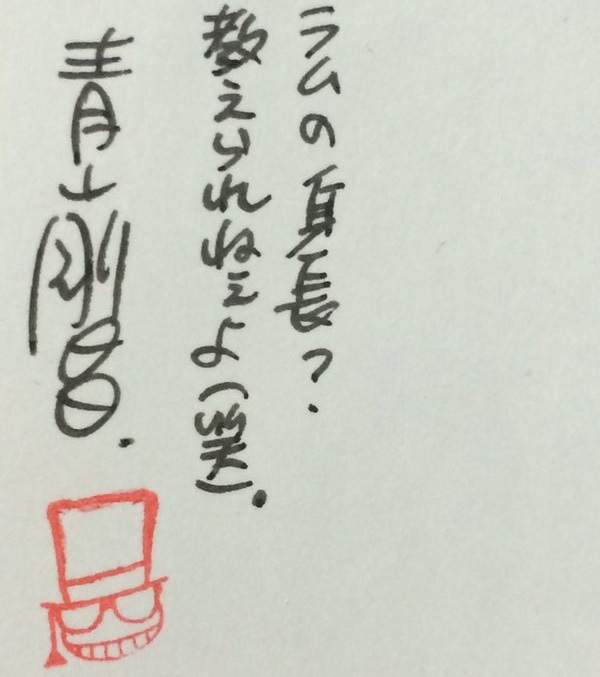 ラムの身長?.
教えられねぇよ(笑)。
青山剛昌.